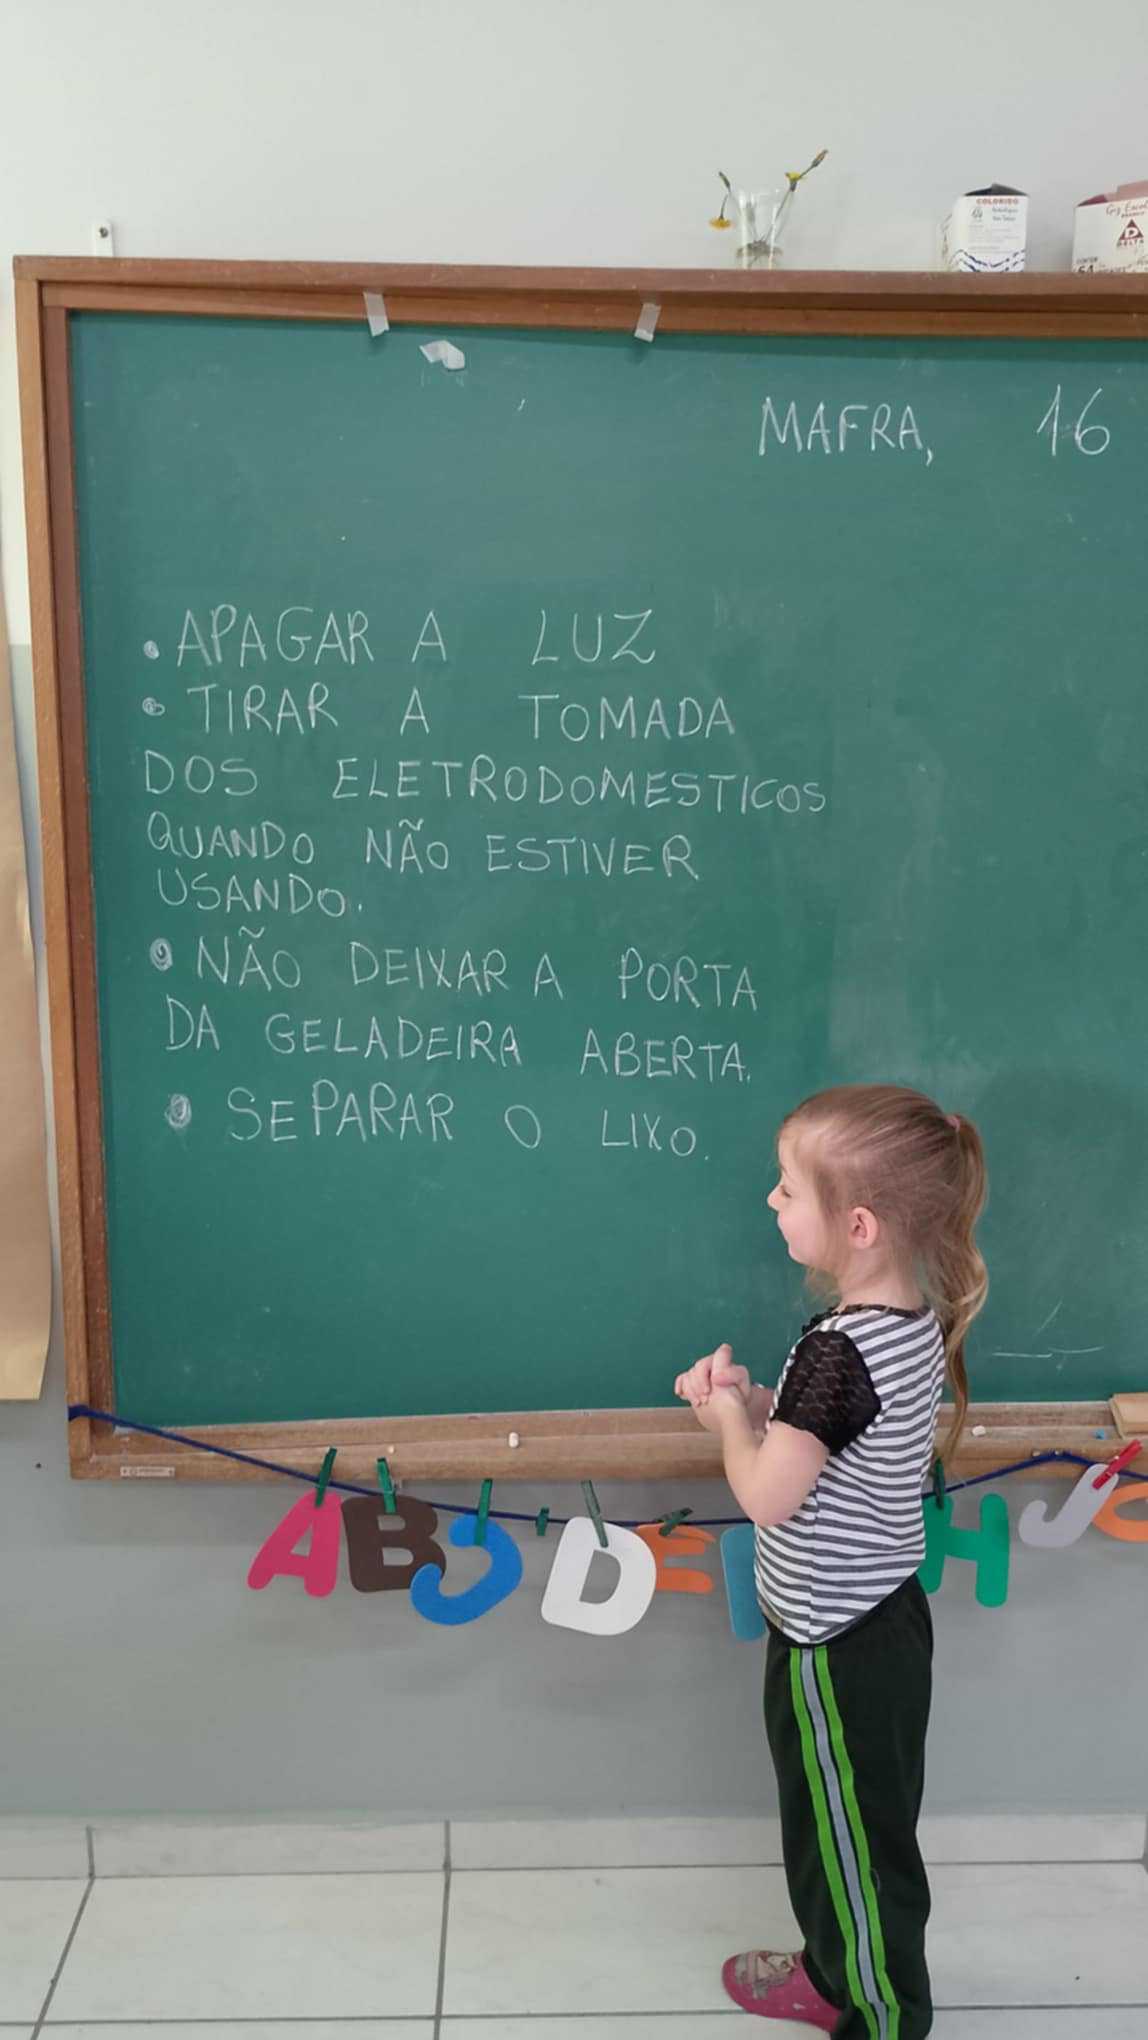 COLORIDO
Giz Escol
DELTA
64
MAFRA, 16
• APAGAR A LUZ
• TIRAR A TOMADA
DOS ELETRODOMESTICOS
QUANDO NÃO ESTIVER
USANDO.
• NÃO DEIXAR A PORTA
DA GELADEIRA ABERTA.
• SEPARAR O LIXO.
A B J D E H J